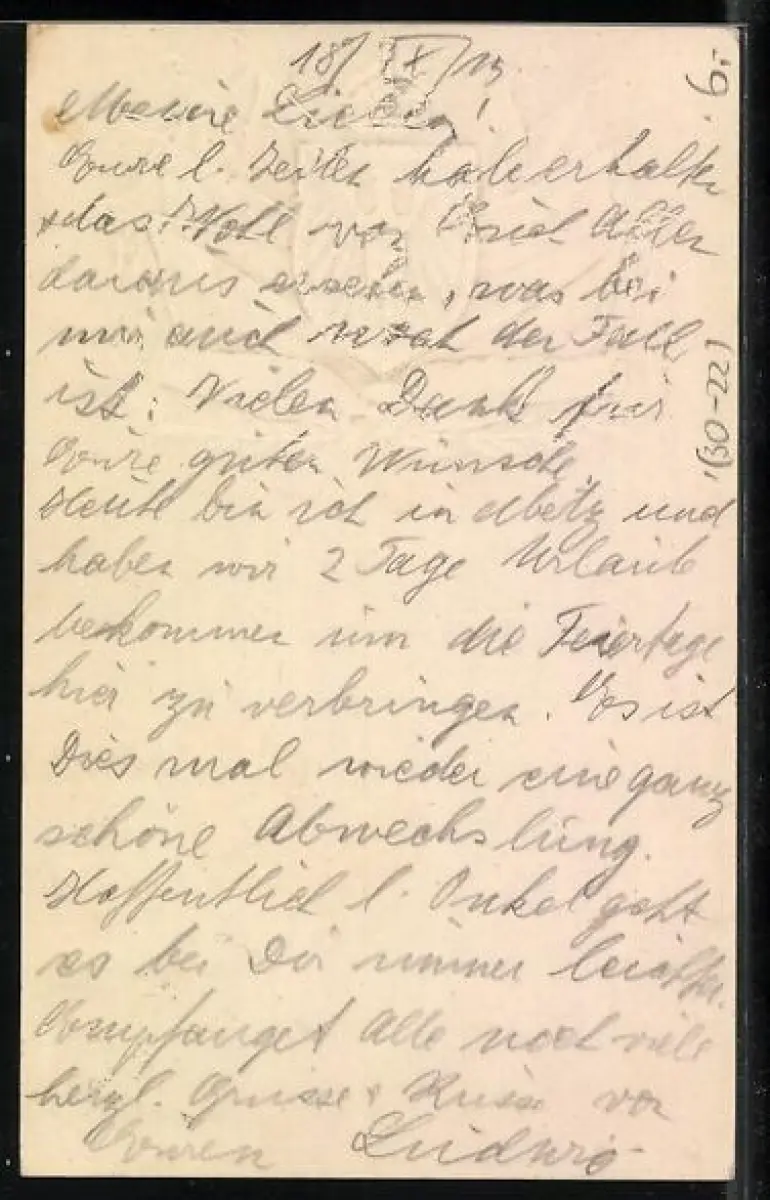 18/IX/15
Meine Lieben!
Eure l. Zeilen habe erhalten
& das Wohl von Euch Allen
daraus ersehen, was bei
mir auch der Fall
ist. Vielen Dank für
Eure guten Wünsche.
Heute bin ich in Metz und
haben wir 2 Tage Urlaub
bekommen um die Feiertage
hier zu verbringen. Es ist
Dies mal wieder eine ganz
schöne Abwechslung.
Hoffentlich l. Onkel geht
es bei Dir immer leichter.
Empfanget Alle noch viele
herzl. Grüsse & Küsse von
Euren Ludwig
6.-
(30-22)